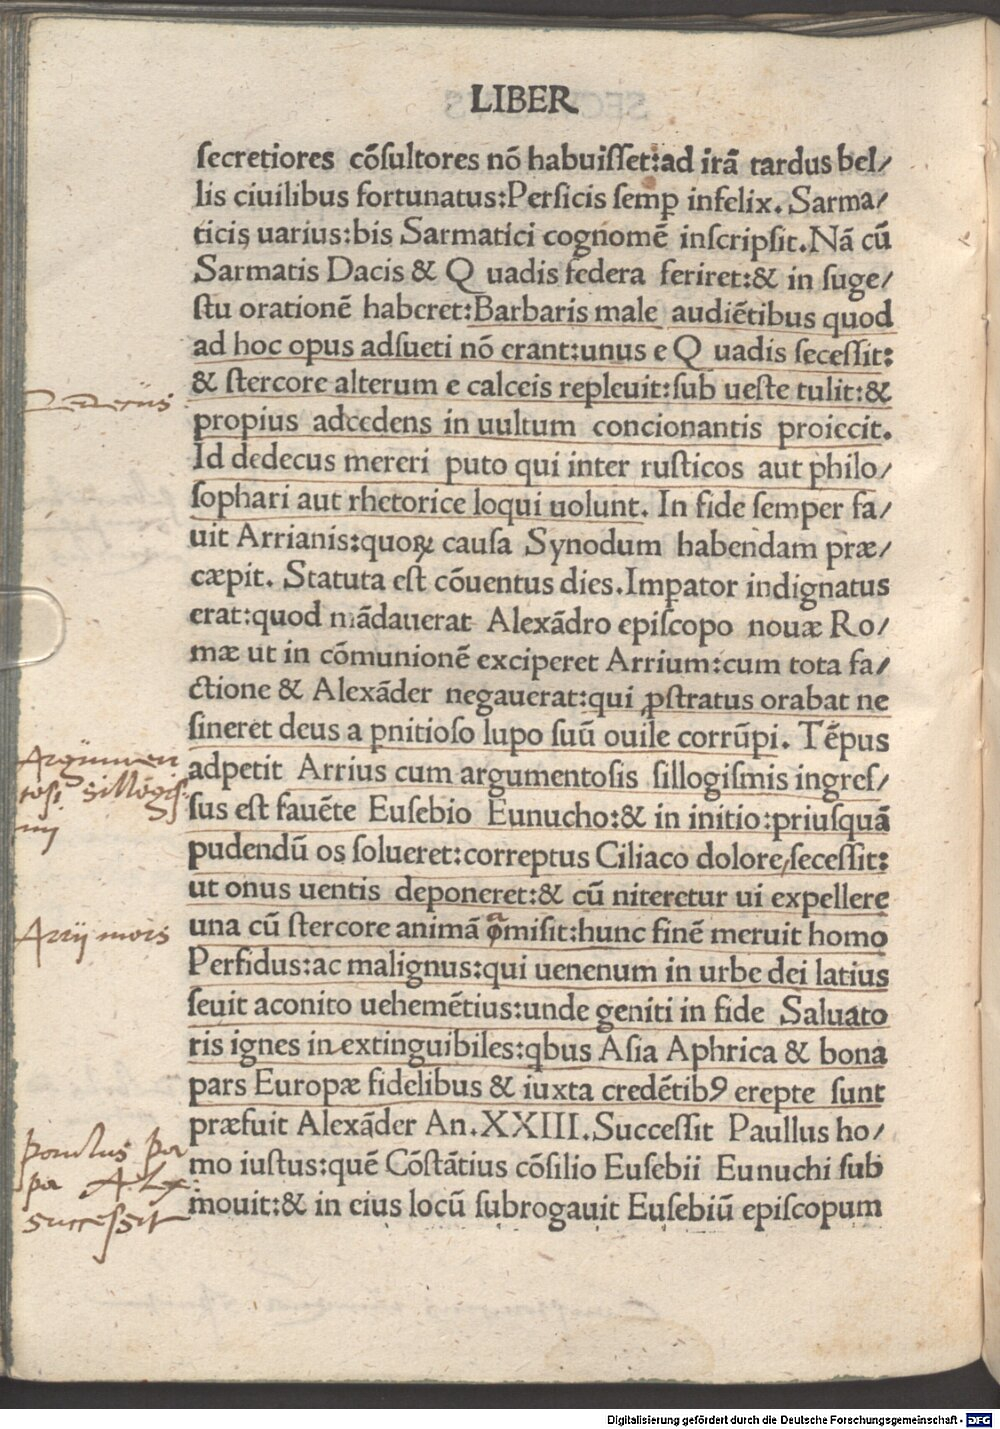 LIBER
secretiores cōsultores nō habuisset:ad irā tardus bel/
lis ciuilibus fortunatus:Persicis semp infelix. Sarma/
ticis uarius:bis Sarmatici cognomē inscripsit.Nā cū
Sarmatis Dacis & Q uadis federa feriret:& in suge/
stu orationē haberet:Barbaris male audiētibus quod
ad hoc opus adsueti nō erant:unus e Q uadis secessit:
& stercore alterum e calceis repleuit:sub ueste tulit:&
Dedecus
propius adcedens in uultum concionantis proiecit.
Id dedecus mereri puto qui inter rusticos aut philo/
sophari aut rhetorice loqui uolunt. In fide semper fa/
uit Arrianis:quoꝝ causa Synodum habendam præ/
cæpit. Statuta est cōuentus dies.Impator indignatus
erat:quod mādauerat Alexādro episcopo nouæ Ro/
mæ ut in cōmunionē exciperet Arrium:cum tota fa/
ctione & Alexāder negauerat:qui ꝓstratus orabat ne
sineret deus a pnitioso lupo suū ouile corrūpi. Tēpus
Argumen
tosi sillogis
mi
adpetit Arrius cum argumentosis sillogismis ingres/
sus est fauēte Eusebio Eunucho:& in initio:priusquā
pudendū os solueret:correptus Ciliaco dolore,secessit:
ut onus uentis deponeret:& cū niteretur ui expellere
Arrij mors
una cū stercore animā ꝓmisit:hunc finē meruit homo
Perfidus:ac malignus:qui uenenum in urbe dei latius
seuit aconito uehemētius:unde geniti in fide Saluato
ris ignes inextinguibiles:qbus Asia Aphrica & bona
pars Europæ fidelibus & iuxta credētibꝰ erepte sunt
præfuit Alexāder An.XXIII.Successit Paullus ho/
paulus pa
pa Alex
successit
mo iustus:quē Cōstātius cōsilio Eusebii Eunuchi sub
mouit:& in eius locū subrogauit Eusebiū episcopum
Digitalisierung gefördert durch die Deutsche Forschungsgemeinschaft - DFG